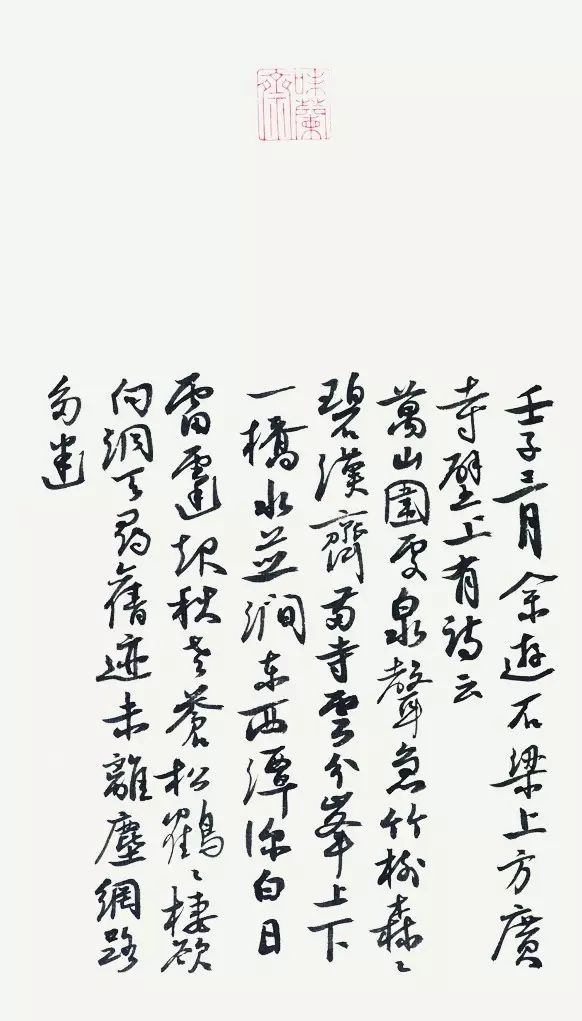 壬子三月余遊石梁上方廣
寺壁上有詩云
萬山圍處泉聲急竹樹森〻
碧漢齊兩寺雲分峯上下
一橋水並澗東西潭深白日
雷霆起秋老蒼松鶴〻棲欲
向洞天尋舊迹未離塵網路
多迷